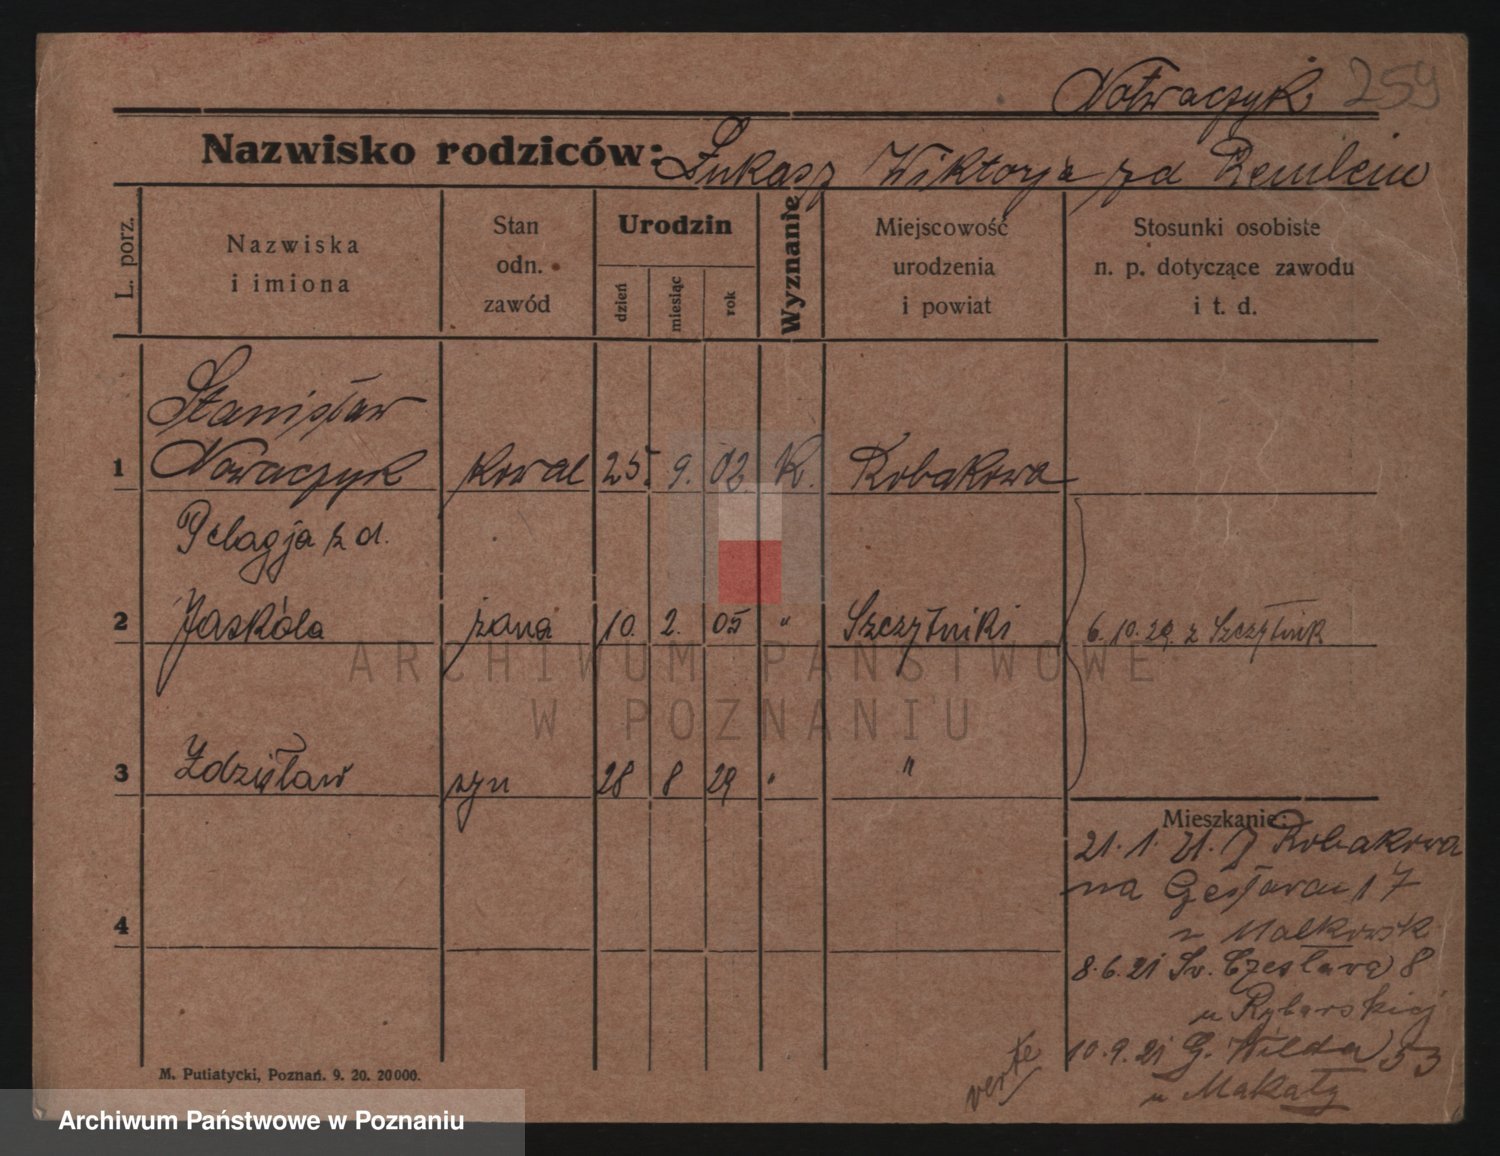 Nowaczyk 259
Nazwisko rodziców: Łukasz Wiktorja z d
L. porz.
Nazwiska
i imiona
Stan
odn.
zawód
Urodzin
dzień
miesiąc
rok
Wyznanie
Miejscowość
urodzenia
i powiat
Stosunki osobiste
n. p. dotyczące zawodu
i t. d.
Stanisław
1 Nowaczyk kowal 25. 9. 02 K. Robakowa
Pelagja z d.
2 Jaskóla żona 10. 2. 05 " Szczytniki 6.10.29. z Szczytnik
3 Zdzisław syn 28 8 29 " "
Mieszkanie:
21.1.21. Robakowa
na 17
4 u Małkowsk
8.6.21 Św. Czesława 8
u Rybarskiej
10.9.21 G. Wilda 53
u Makały
verte
M. Putiatycki, Poznań. 9. 20. 20000.
ARCHIWUM PAŃSTWOWE
W POZNANIU
Archiwum Państwowe w Poznaniu